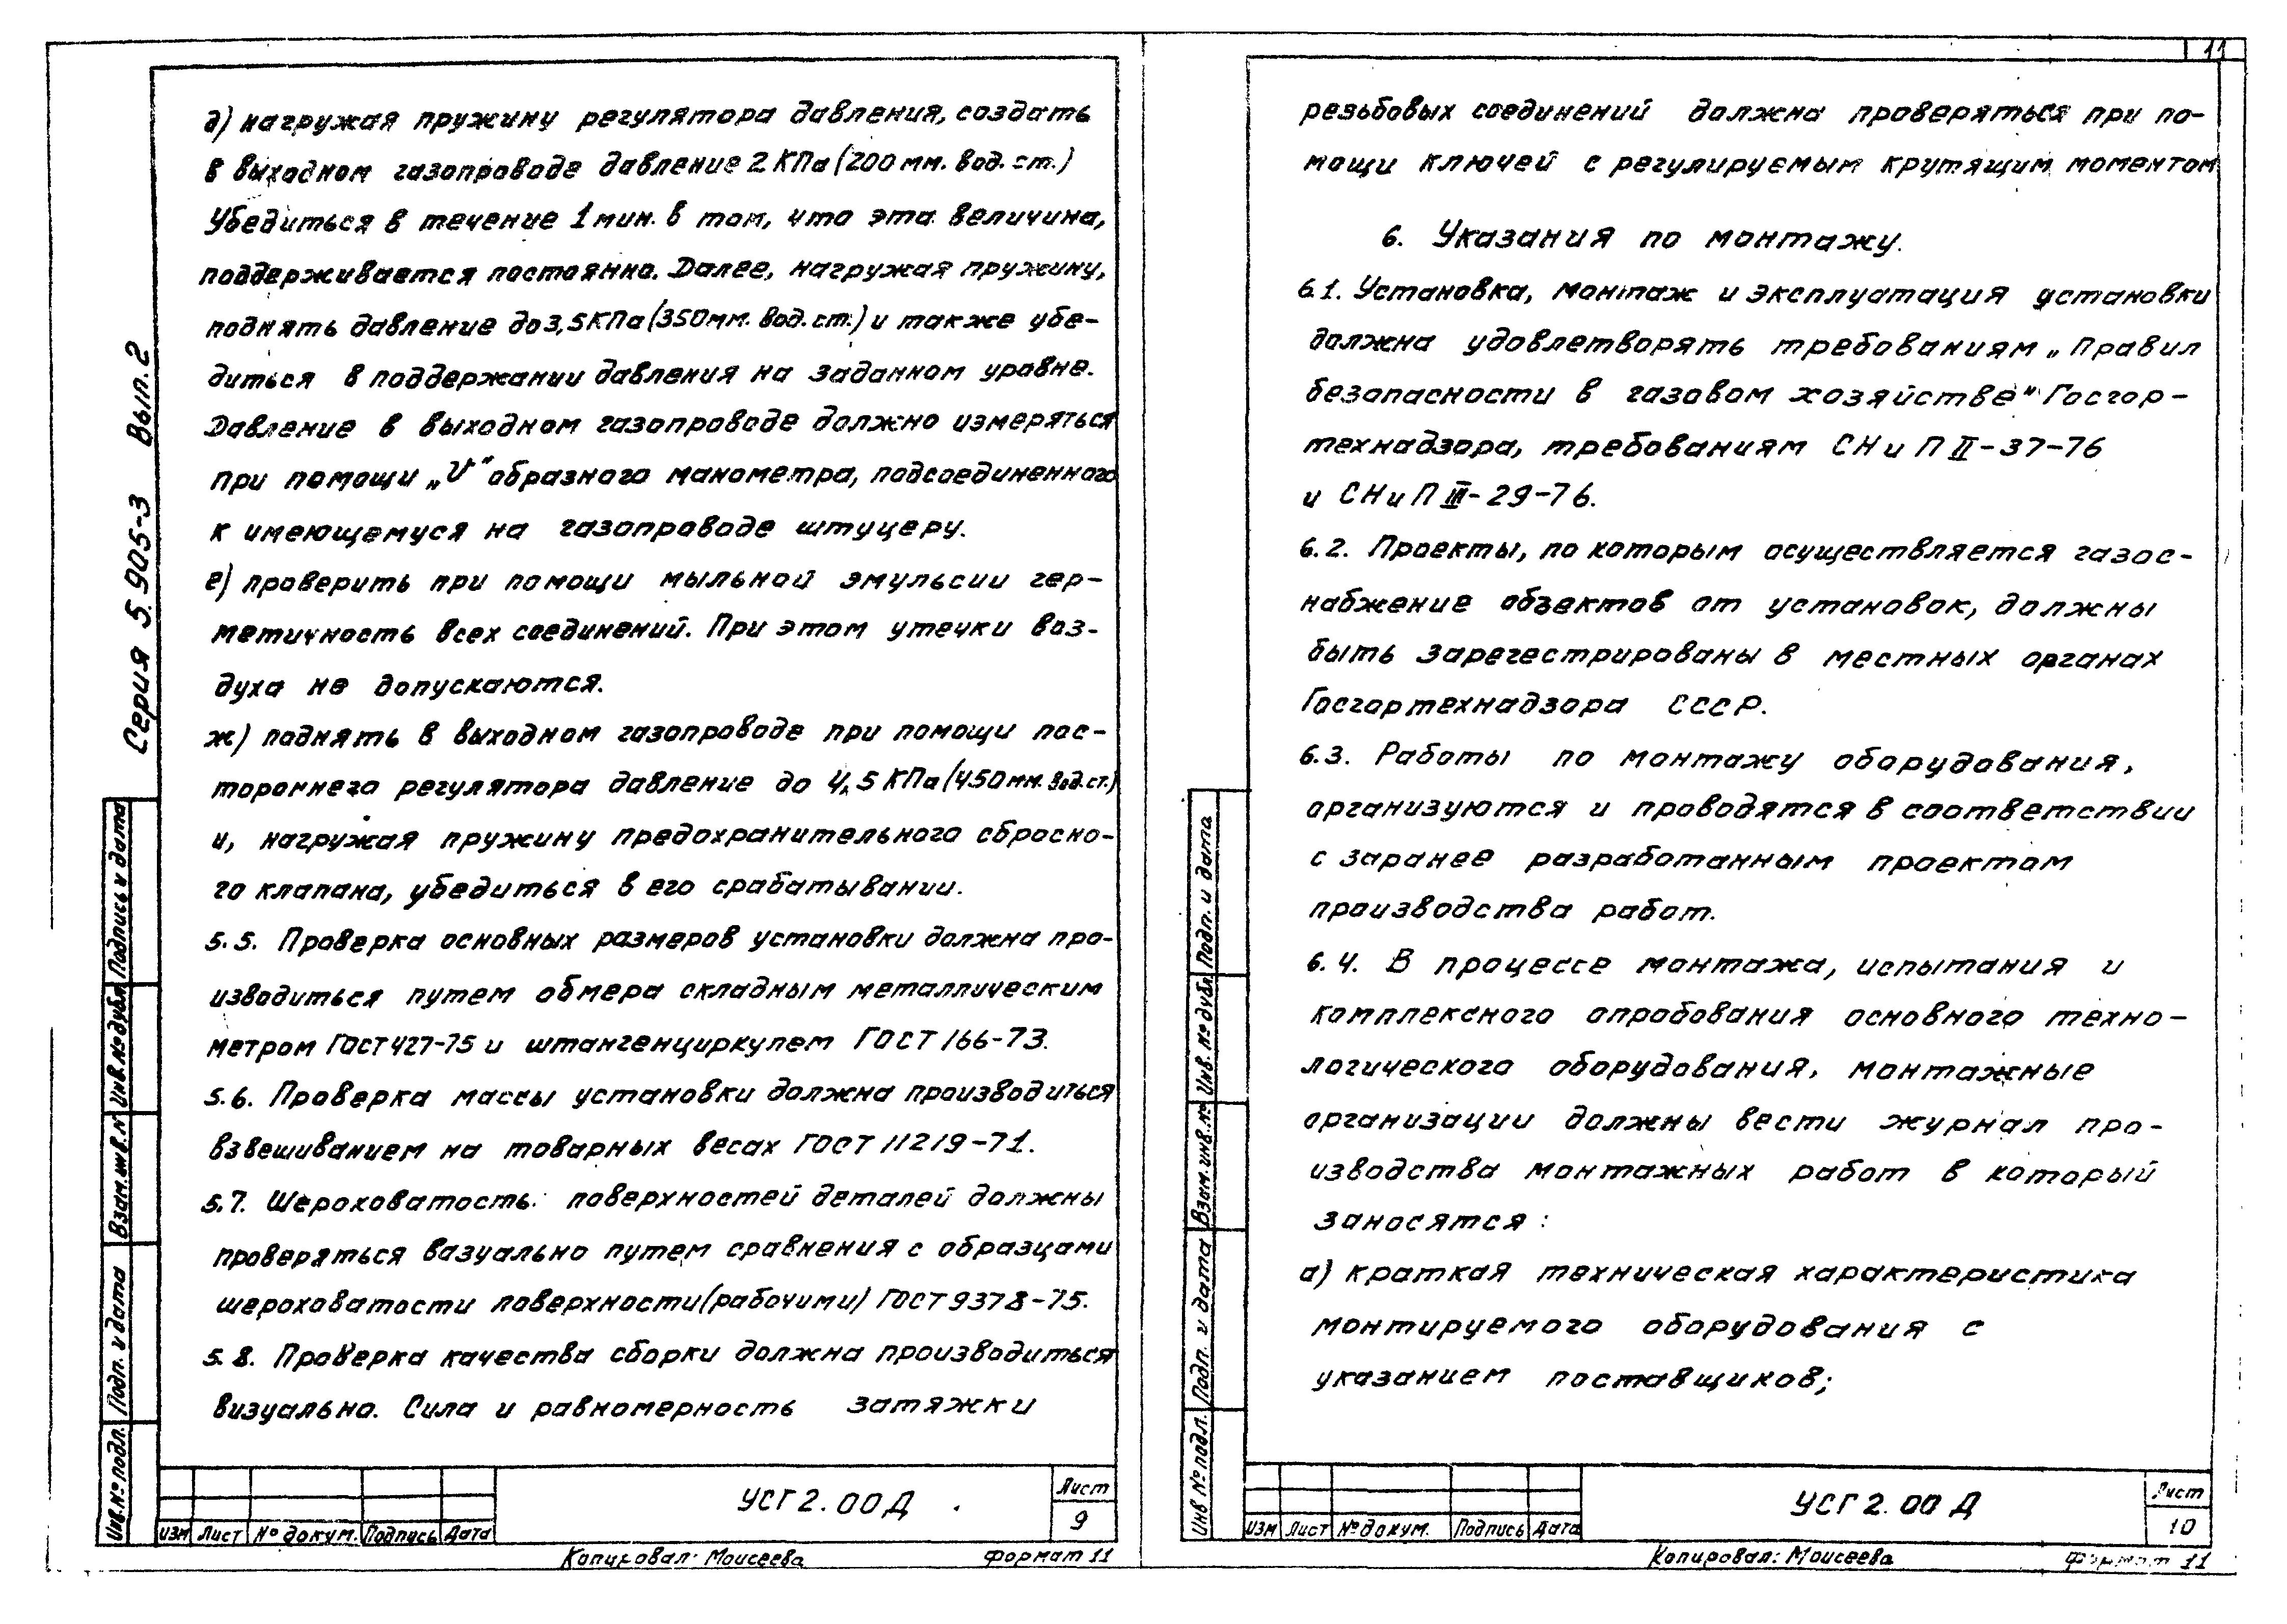 11
Серия 5.905-3 Вып.2
д) нагружая пружину регулятора давления, создать
в выходном газопроводе давление 2 КПа (200 мм. вод. ст.)
Убедиться в течение 1 мин. в том, что эта величина,
поддерживается постоянно. Далее, нагружая пружину,
поднять давление до 3,5 КПа (350 мм. вод. ст.) и также убе-
диться в поддержании давления на заданном уровне.
Давление в выходном газопроводе должно измеряться
при помощи „U" образного манометра, подсоединенного
к имеющемуся на газопроводе штуцеру.
е) проверить при помощи мыльной эмульсии гер-
метичность всех соединений. При этом утечки воз-
духа не допускаются.
ж) поднять в выходном газопроводе при помощи пос-
тороннего регулятора давление до 4,5 КПа (450 мм. вод.ст.)
и, нагружая пружину предохранительного сбросно-
го клапана, убедиться в его срабатывании.
5.5. Проверка основных размеров установки должна про-
изводиться путем обмера складным металлическим
метром ГОСТ 427-75 и штангенциркулем ГОСТ 166-73.
5.6. Проверка массы установки должна производиться
взвешиванием на товарных весах ГОСТ 11219-71.
5.7. Шероховатость поверхностей деталей должны
проверяться вазуально путем сравнения с образцами
шероховатости поверхности (рабочими) ГОСТ 9378-75.
5.8. Проверка качества сборки должна производиться
визуально. Сила и равномерность затяжки
Подпись и дата
Инв.№ дубл
Взам.инв.№
Подп. и дата
Инв.№ подл.
Изм Лист № докум. Подпись Дата
УСГ 2.00 Д
Лист
9
Копировал: Моисеева
формат 11
резьбовых соединений должна проверяться при по-
мощи ключей с регулируемым крутящим моментом
6. Указания по монтажу.
6.1. Установка, монтаж и эксплуатация установки
должна удовлетворять требованиям „Правил
безопасности в газовом хозяйстве" Госгор-
технадзора, требованиям СНиП II-37-76
и СНиП III-29-76.
6.2. Проекты, по которым осуществляется газос-
набжение объектов от установок, должны
быть зарегестрированы в местных органах
Госгортехнадзора СССР.
6.3. Работы по монтажу оборудования,
организуются и проводятся в соответствии
с заранее разработанным проектом
производства работ.
6.4. В процессе монтажа, испытания и
комплексного опробования основного техно-
логического оборудования, монтажные
организации должны вести журнал про-
изводства монтажных работ в который
заносятся:
а) краткая техническая характеристика
монтируемого оборудования с
указанием поставщиков;
Подп. и дата
Инв. № дубл
Взам.инв.№
Подп. и дата
Инв № подл.
Изм Лист № докум. Подпись Дата
УСГ 2.00 Д
Лист
10
Копировал: Моисеева
Формат 11